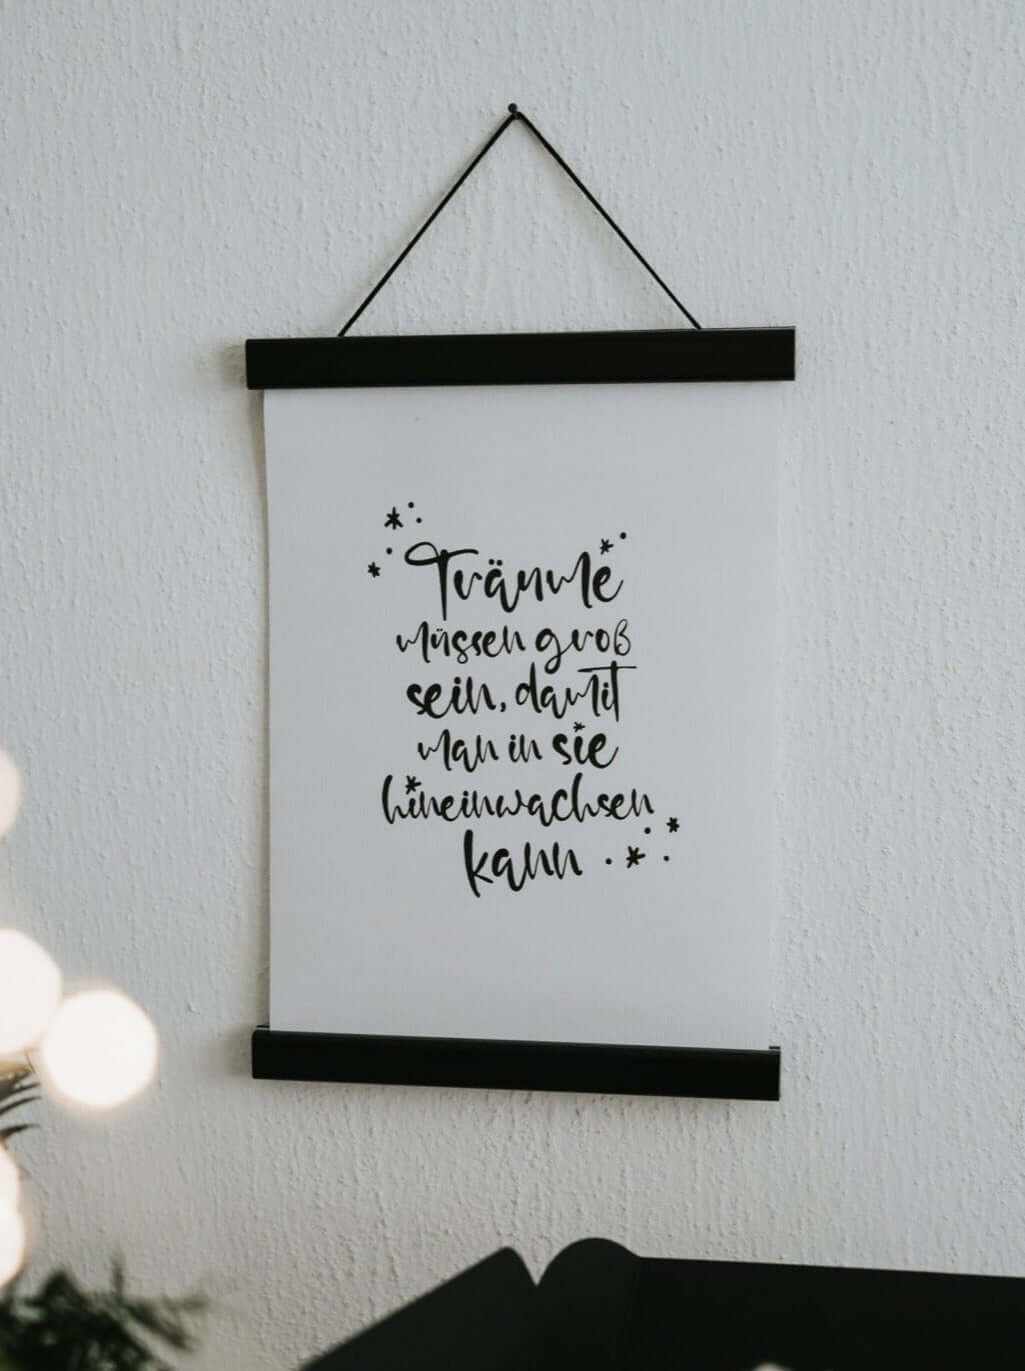 Träume
müssen groß
sein, damit
man in sie
hineinwachsen
kann